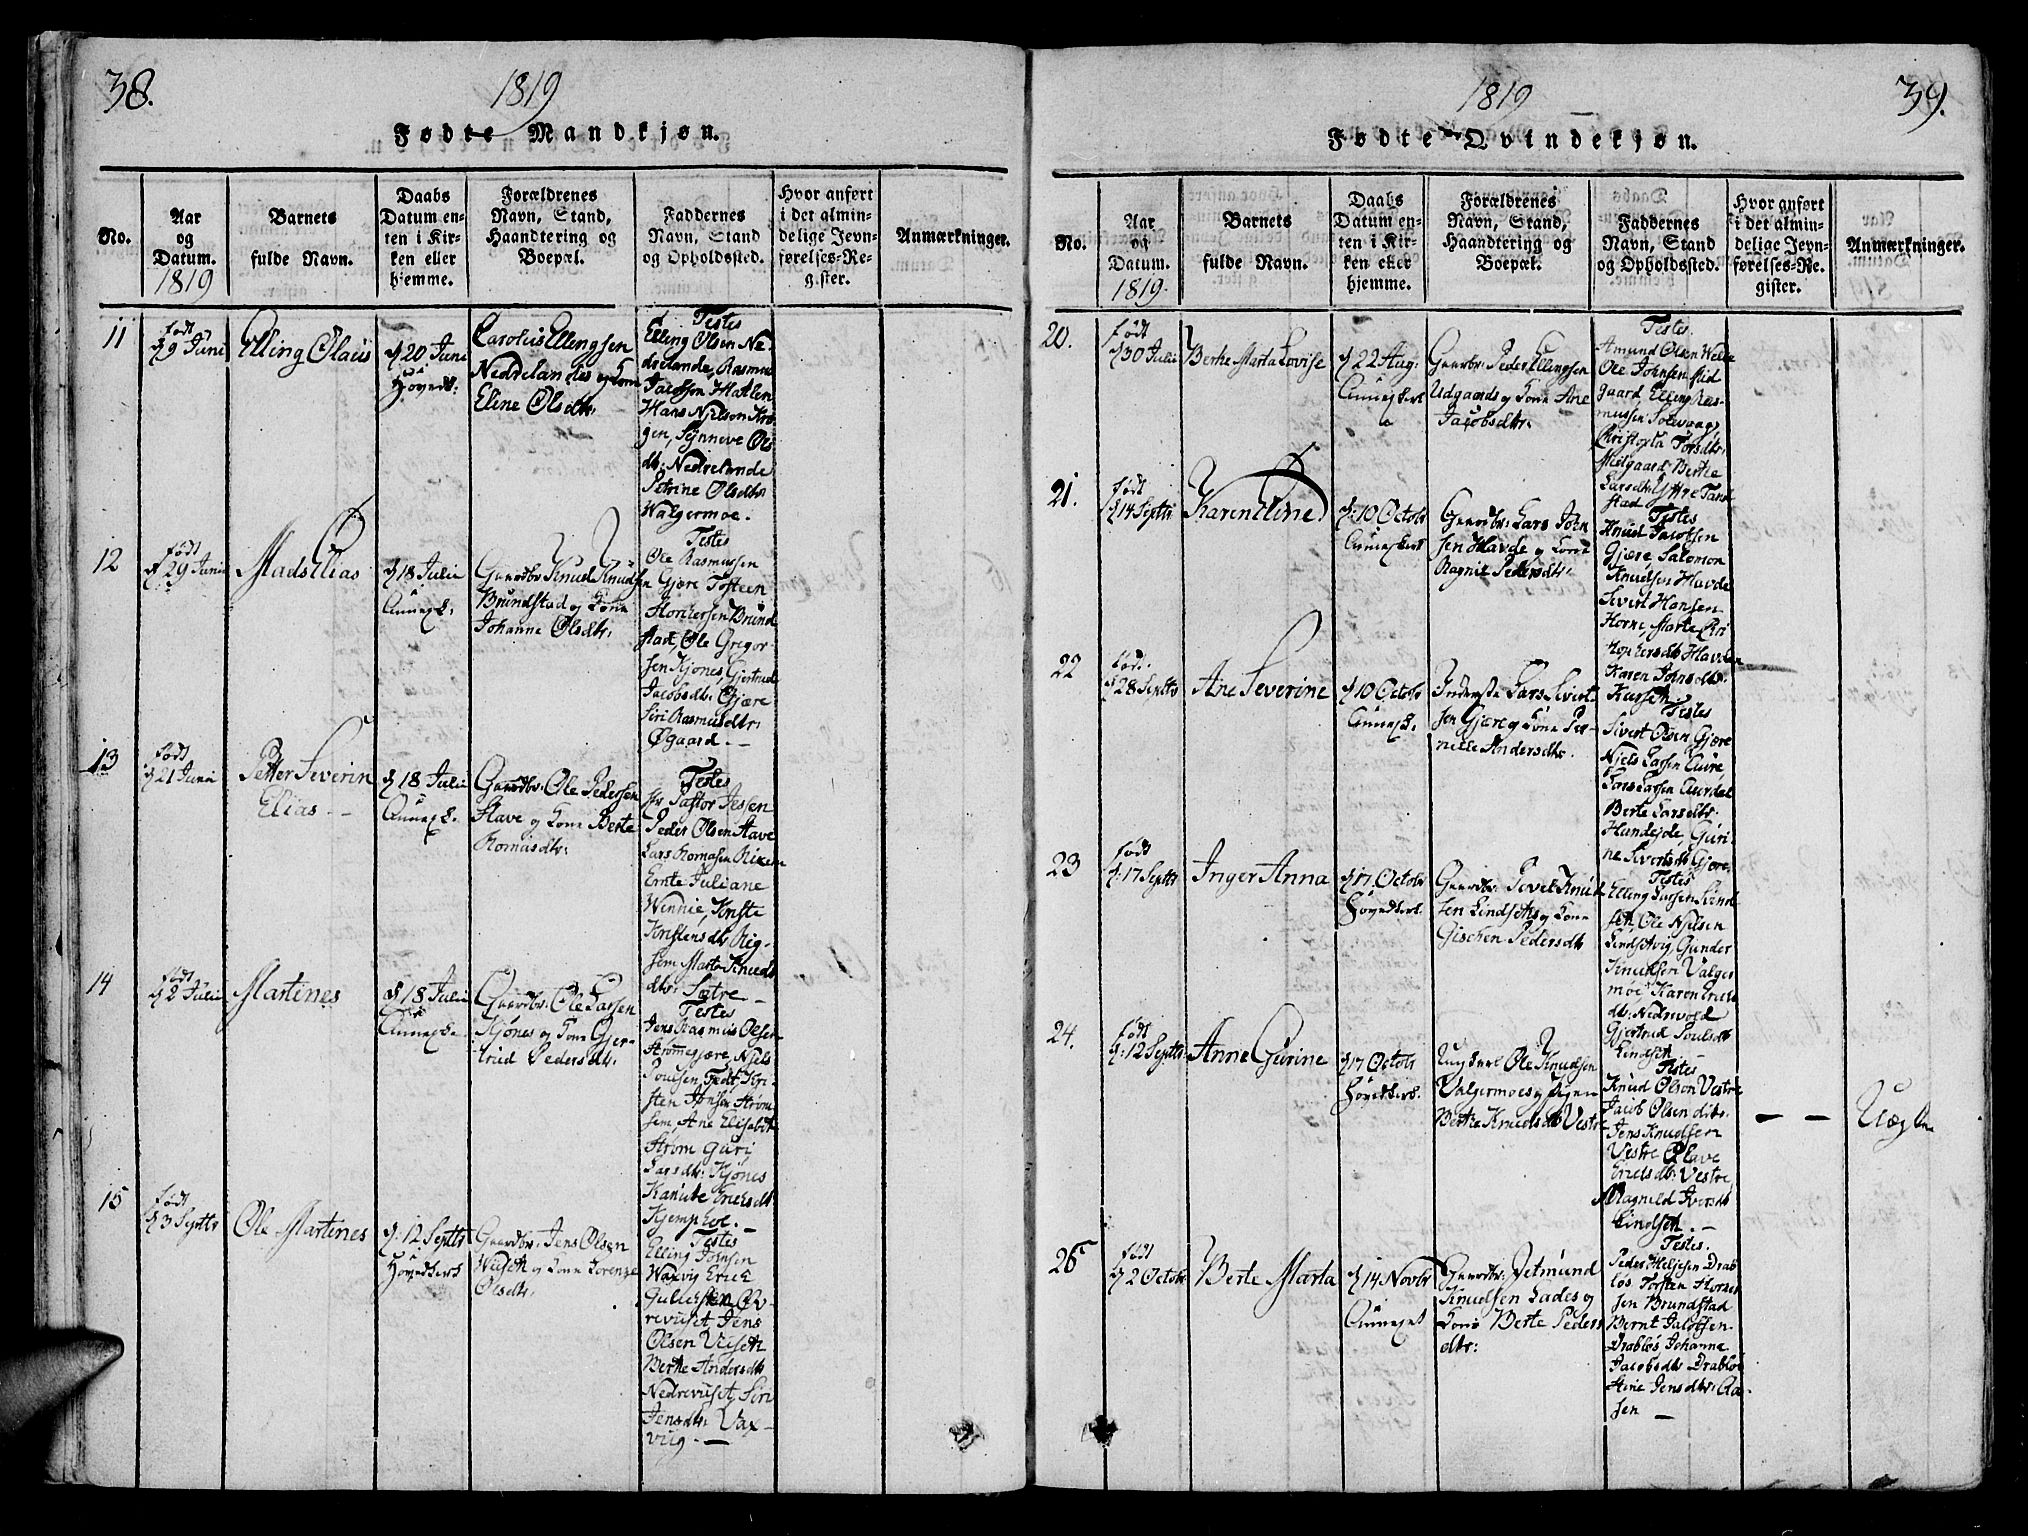 38.
1819
Fødte Mandkjøn.
No.
Aar
og
Datum.
1819
Barnets
fulde Navn.
Daabs
Datum en-
ten i Kir-
ken eller
hjemme.
Forældrenes
Navn, Stand,
Haandtering og
Boepæl.
Faddernes
Navn, Stand
og Opholdssted.
Hvor anført
i det almin-
delige Jevn-
førelses-Re-
gister.
Anmærkninger.
11
født
9 Juni
Elling Olaus
20 Juni
Hovedk:
Carolus Ellingsen
Nedrelandes og Kone
Eline Olsdtr:
Testes
Elling Olsen Ne-
drelande, Rasmus
Jacobsen Hatlen
Hans Nielson Kro-
gen, Synneve Ols
dtr: Nedrelande
Petrine Olsdtr
Walgermoe.
12
født
29 Juni
Mads Elias
18 Juli
Annexk:
Gaardbr: Knud Knudsen
Brundstad og Kone
Johanne Olsdtr:
Testes
Ole Rasmussen
Gjære Tosteen
Brund
stad, Ole Gregor-
sen Kjønes, Gjertrud
Jacobsdtr: Gjære
Siri Rasmusdtr:
Øgaard. -
13
født
21 Juni
Petter Severin
Elias -
18 Juli
Annexk.
Gaardbr: Ole Pedersen
Stave og Kone Berte
Romusdtr:
Testes
Hr Pastor Jessen
Peder Olsen Stave
Lars Romasen
Emte Juliane
Winnie,
dtr Rig-
sem Marta Knuds
dtr: Sætre -
14
født
2 Julii
Martines
18 Julii
Annexk.
Gaardbr: Ole Larsen
Kjønes og Kone Gjer-
trud Pedersdtr:
Testes
Jens Rasmus Olsen
Strømegjære, Niels
Poulsen, Tedt, Kri-
sten Jonsen Strøm
sem, Ane Elisabet
Strøm Guri
Larsdtr: Kjønes
Kanute Ericksdtr
15
født
3 Septbr
Ole Martines
12 Septbr
Hovedkirk
Gaardbr: Jens Olsen
Wiset og Kone Lorense
Olsdtr:
Testes
Elling Jonsen
Waxvig Erick
revuset, Jens
Olsen Viset
Berte Andersdtr
Nedrevuset, Siri
Jensdtr: Vax-
vug. -
1819
39.
Fødte Qvindekjøn.
No.
Aar
og
Datum.
1819.
Barnets
fulde Navn.
Daabs
Datum en-
ten i Kir-
ken eller
hjemme.
Forældrenes
Navn, Stand,
Haandtering og
Boepæl.
Faddernes
Navn, Stand
og Opholdssted.
Hvor anført
i det almin-
delige Jevn-
førelses-Re-
gister.
Anmærkninger.
20.
Født
30 Julii
Berte Marta Lovise
22 Aug:
Annexkirk
Gaardbr: Peder Ellingsen
Udgaards og Kone Ane
Jacobsdtr.
Testes.
Amund Olsen Welle
Ole Johnsen Ud
gaard, Elling Ras-
mussen Solevaag,
Torsdtr:
Berte
Larsdtr Yttre Tand
stad
21.
født
14 Septbr
Karen Eline
10 Octobr
Annexkirk
Gaardbr: Lars John
sen Havde og Kone
Ragnie Pedersdtr.
Testes
Knud Jacobsen
Gjære, Salomon
Knudsen Havde
Sivert Hansen
Horne, Marte Kri
Karen Jonsdtr.
22
født.
28 Septbr
Ane Severine
10 Octobr
Annexk.
Inderste Lars Sivert-
sen Gjære og Kone Per-
nille Andersdtr.
Testes
Sivert Olsen Gjære
Niels Larsen Aure,
Lars Larsen Aurdal
Berte Larsdtr.
Hundejde, Guri-
ne Sivertsdtr Gjære
23
født
17 Septbr
Inger Anna
17 Octobr
Hovedkirk.
Gaardbr: Povel Knud
sen Lindsets og Kone
Gischen Pedersdtr
Testes
Elling Larsen Svind
set, Ole Nielsen
Gunder
Knudsen Valger
moe, Karen Ericks
dtr: Nedrevold
Gjertrud Poulsdtr
Lindset -
24.
født
12 Septbr
Anne Gurine
17 Octobr
Hovedkirk.
Ungkarl Ole Knudsen
Valgermoes og Pigen
Berte Knudsdtr Vestre
Testes
Knud Olson Vestre
Jacob Olsen dito.
Jens Knudsen
Vestre Olave
Ericksdtr: Vestre,
Magnild Iversdtr
Lindset. -
- -
Uægte
25
født
2 Octobr
Berte Marta
14 Novbr
Annexet
Gaardbr: Petmund
Knudsen Lades og
Kone Berte Peders
dtr:
Testes.
Peder Heljesen Drab
løs Torsten
sen Brundstad
Bernt Jacobsen
Drabløs Johanne
Jacobsdtr Drabløs
Stine Jensdtr: Aa-
sen -